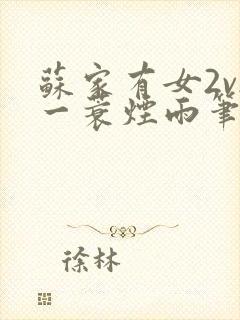 蘇家有女2v
一蓑煙雨筆
徐林